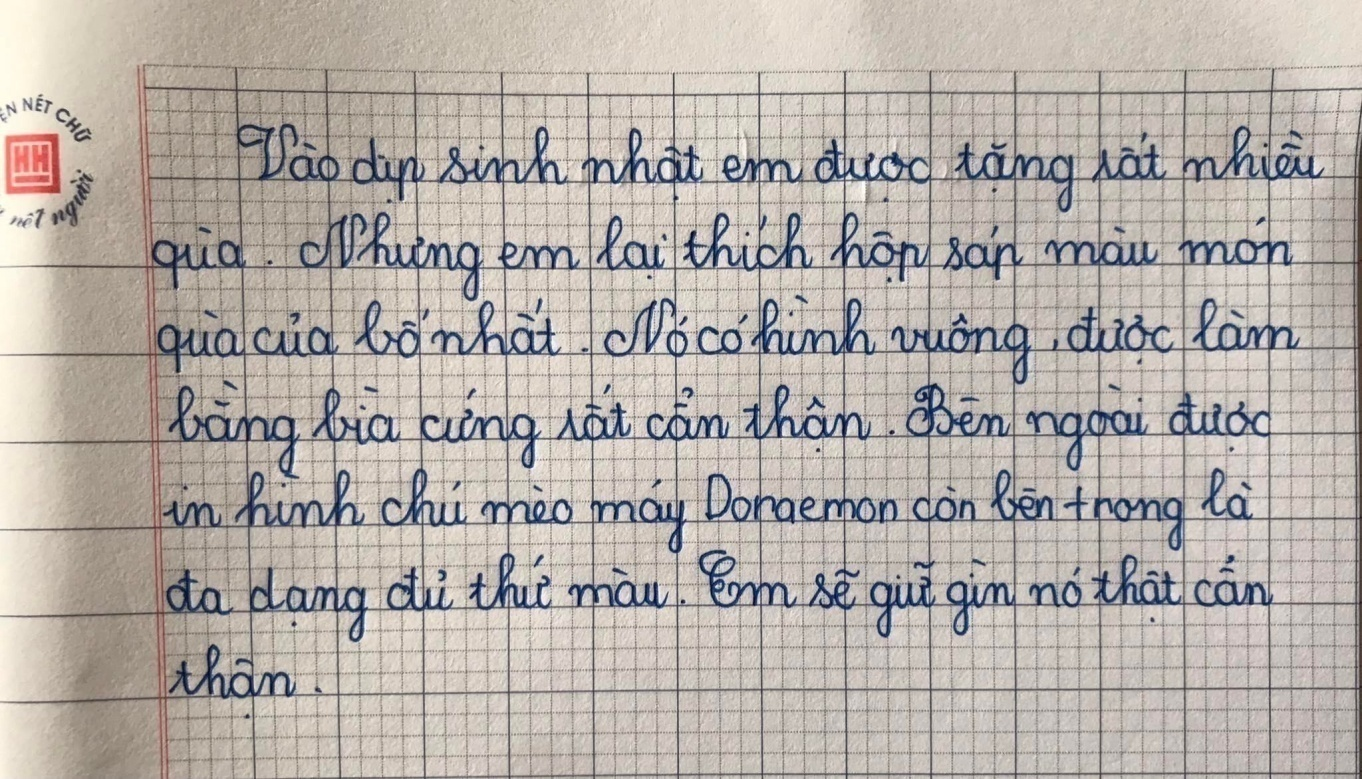 ÈN NÉT CHỮ
HH
nết người
Vào dịp sinh nhật em được tặng rất nhiều
quà. Nhưng em lại thích hộp sáp màu món
quà của bố nhất. Nó có hình vuông, được làm
bằng bìa cứng rất cẩn thận. Bên ngoài được
in hình chú mèo máy Doraemon còn bên trong là
đa dạng đủ thứ màu. Em sẽ giữ gìn nó thật cẩn
thận.